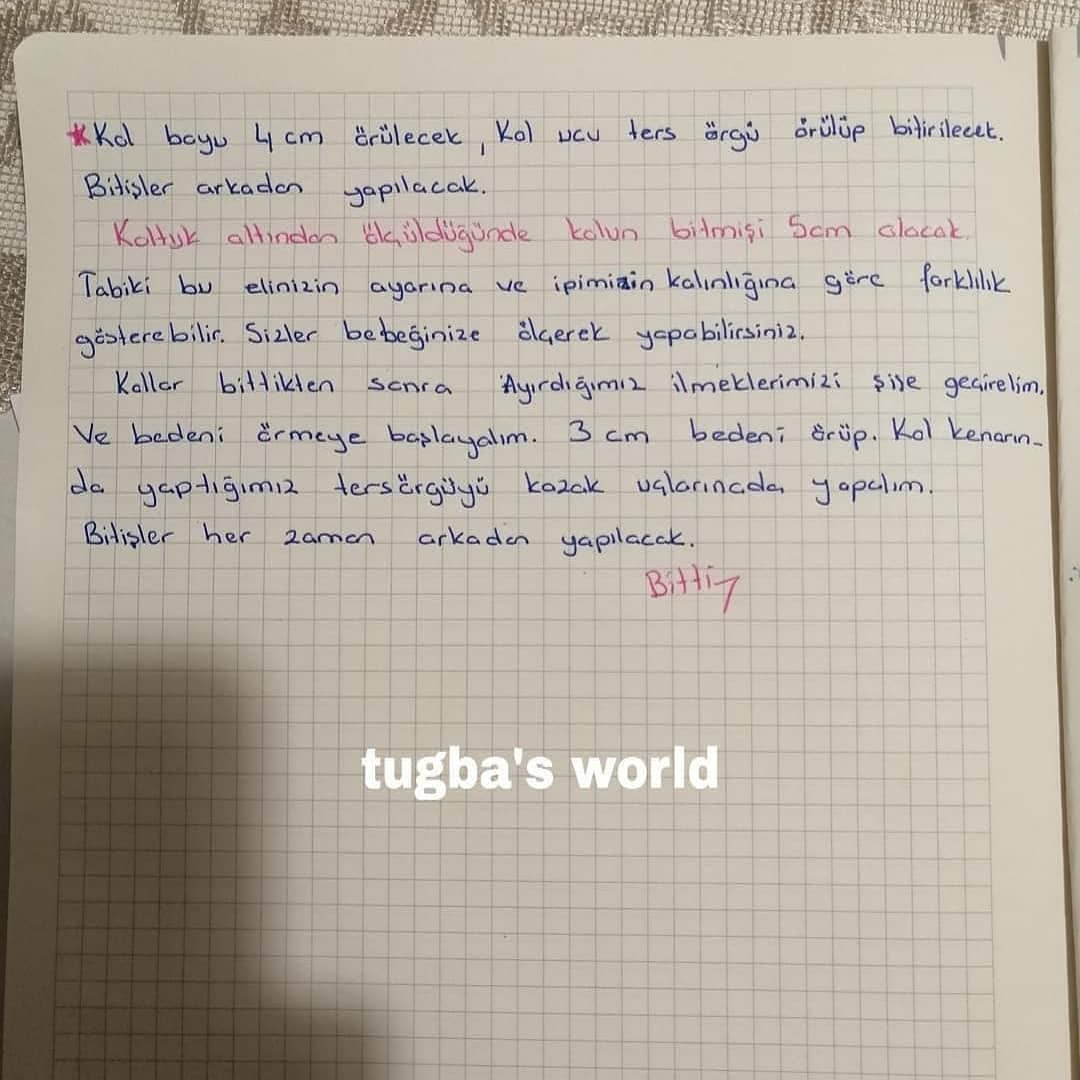 *Kol boyu 4 cm örülecek, Kol ucu ters örgü örülüp bitirilecek.
Bitişler arkadan yapılacak.
Koltuk altından ölçüldüğünde kolun bitmişi 5cm olacak.
Tabiki bu elinizin ayarına ve ipimizin kalınlığına göre farklılık
gösterebilir. Sizler bebeğinize ölçerek yapabilirsiniz.
Kollar bittikten sonra Ayırdığımız ilmeklerimizi şişe geçirelim.
Ve bedeni örmeye başlayalım. 3 cm bedeni örüp. Kol kenarın-
da yaptığımız ters örgüyü kazak uçlarınada yapalım.
Bitişler her zaman arkadan yapılacak.
Bitti
tugba's world